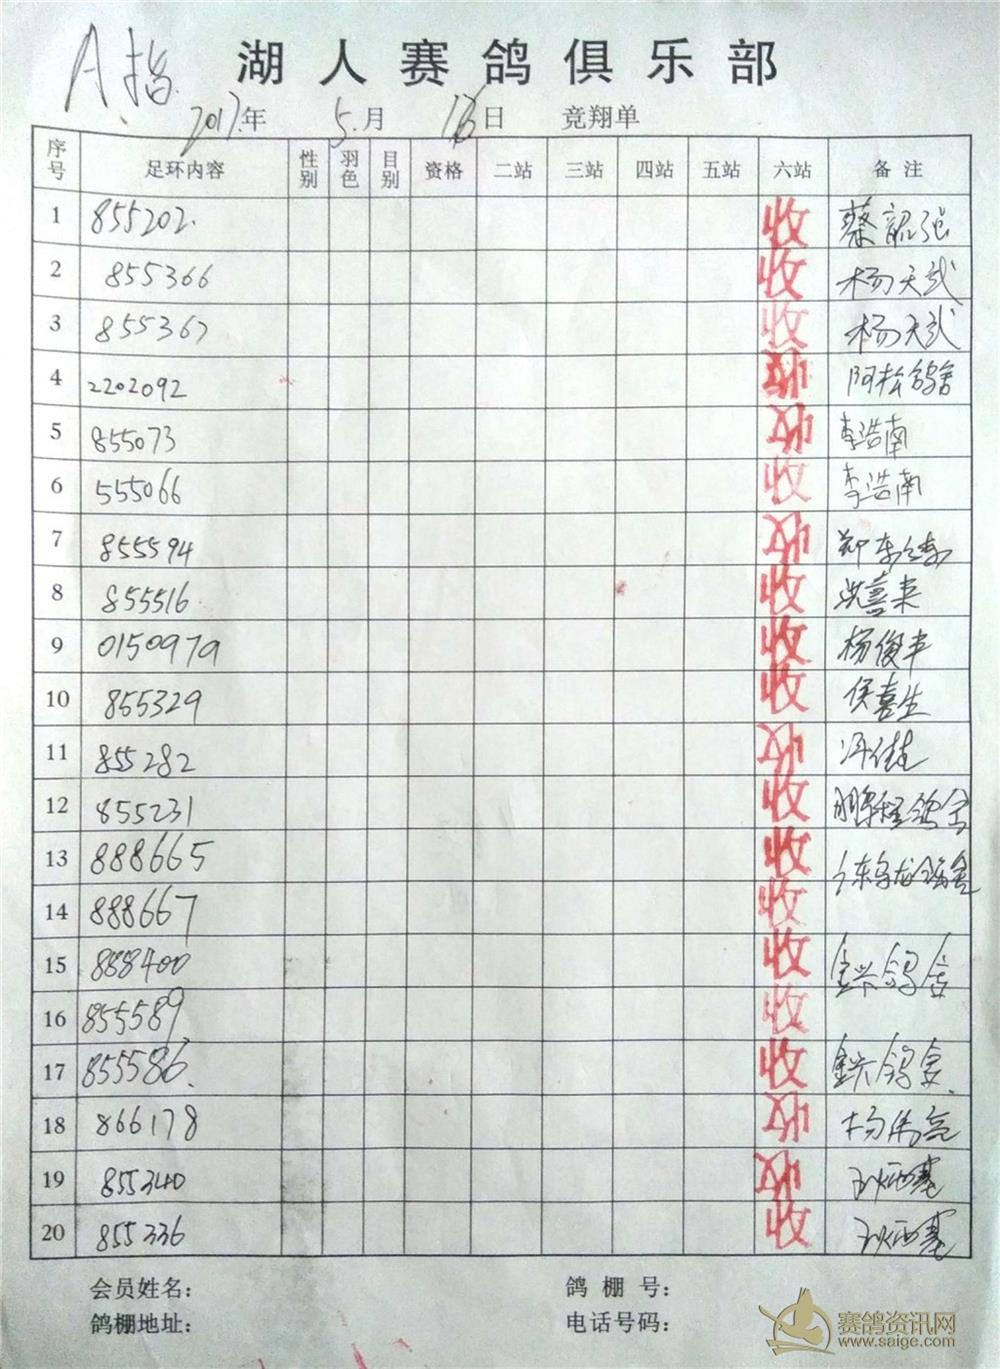 A指
湖人赛鸽俱乐部
2017.年 5.月 日 竞翔单
序号 足环内容 性别 羽色 目别 资格 二站 三站 四站 五站 六站 备注
1 855202. 收 蔡韶强
2 855366 收 杨天武
3 855367 收 杨天武
4 2202092 收 阿松鸽舍
5 855073 收 李浩南
6 555066 收 李浩南
7 855594 收 郑东
8 855516 收 洪喜来
9 0150979 收 杨俊丰
10 855329 收 侯喜生
11 855282 收
12 855231 收 鹏程鸽舍
13 888665 收
14 888667 收
15 858400 收 金兴鸽舍
16 855589 收
17 855586. 收 金兴鸽舍
18 866178 收 杨伟亮
19 855340 收
20 855336 收
会员姓名： 鸽棚号：
鸽棚地址： 电话号码：
赛鸽资讯网
www.saige.com